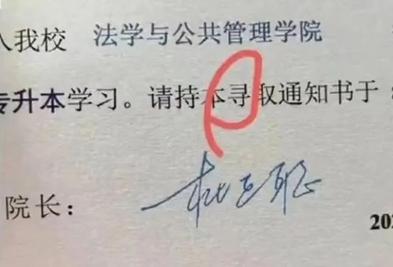 入我校 法学与公共管理学院
专升本学习。请持本寻取通知书于
院长：
202